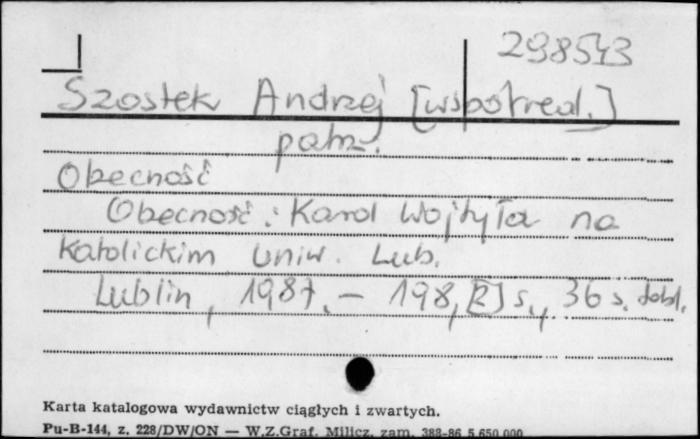 298543
Szostek Andrzej [współred.]
patrz.
Obecność
Obecność : Karol Wojtyła na
Katolickim Uniw. Lub.
Lublin, 1987. – 198, [2] s., 36 s. tabl.
Karta katalogowa wydawnictw ciągłych i zwartych.
Pu-B-144, z. 228/DW/ON — W.Z.Graf. Milicz, zam. 388-86 5.650.000